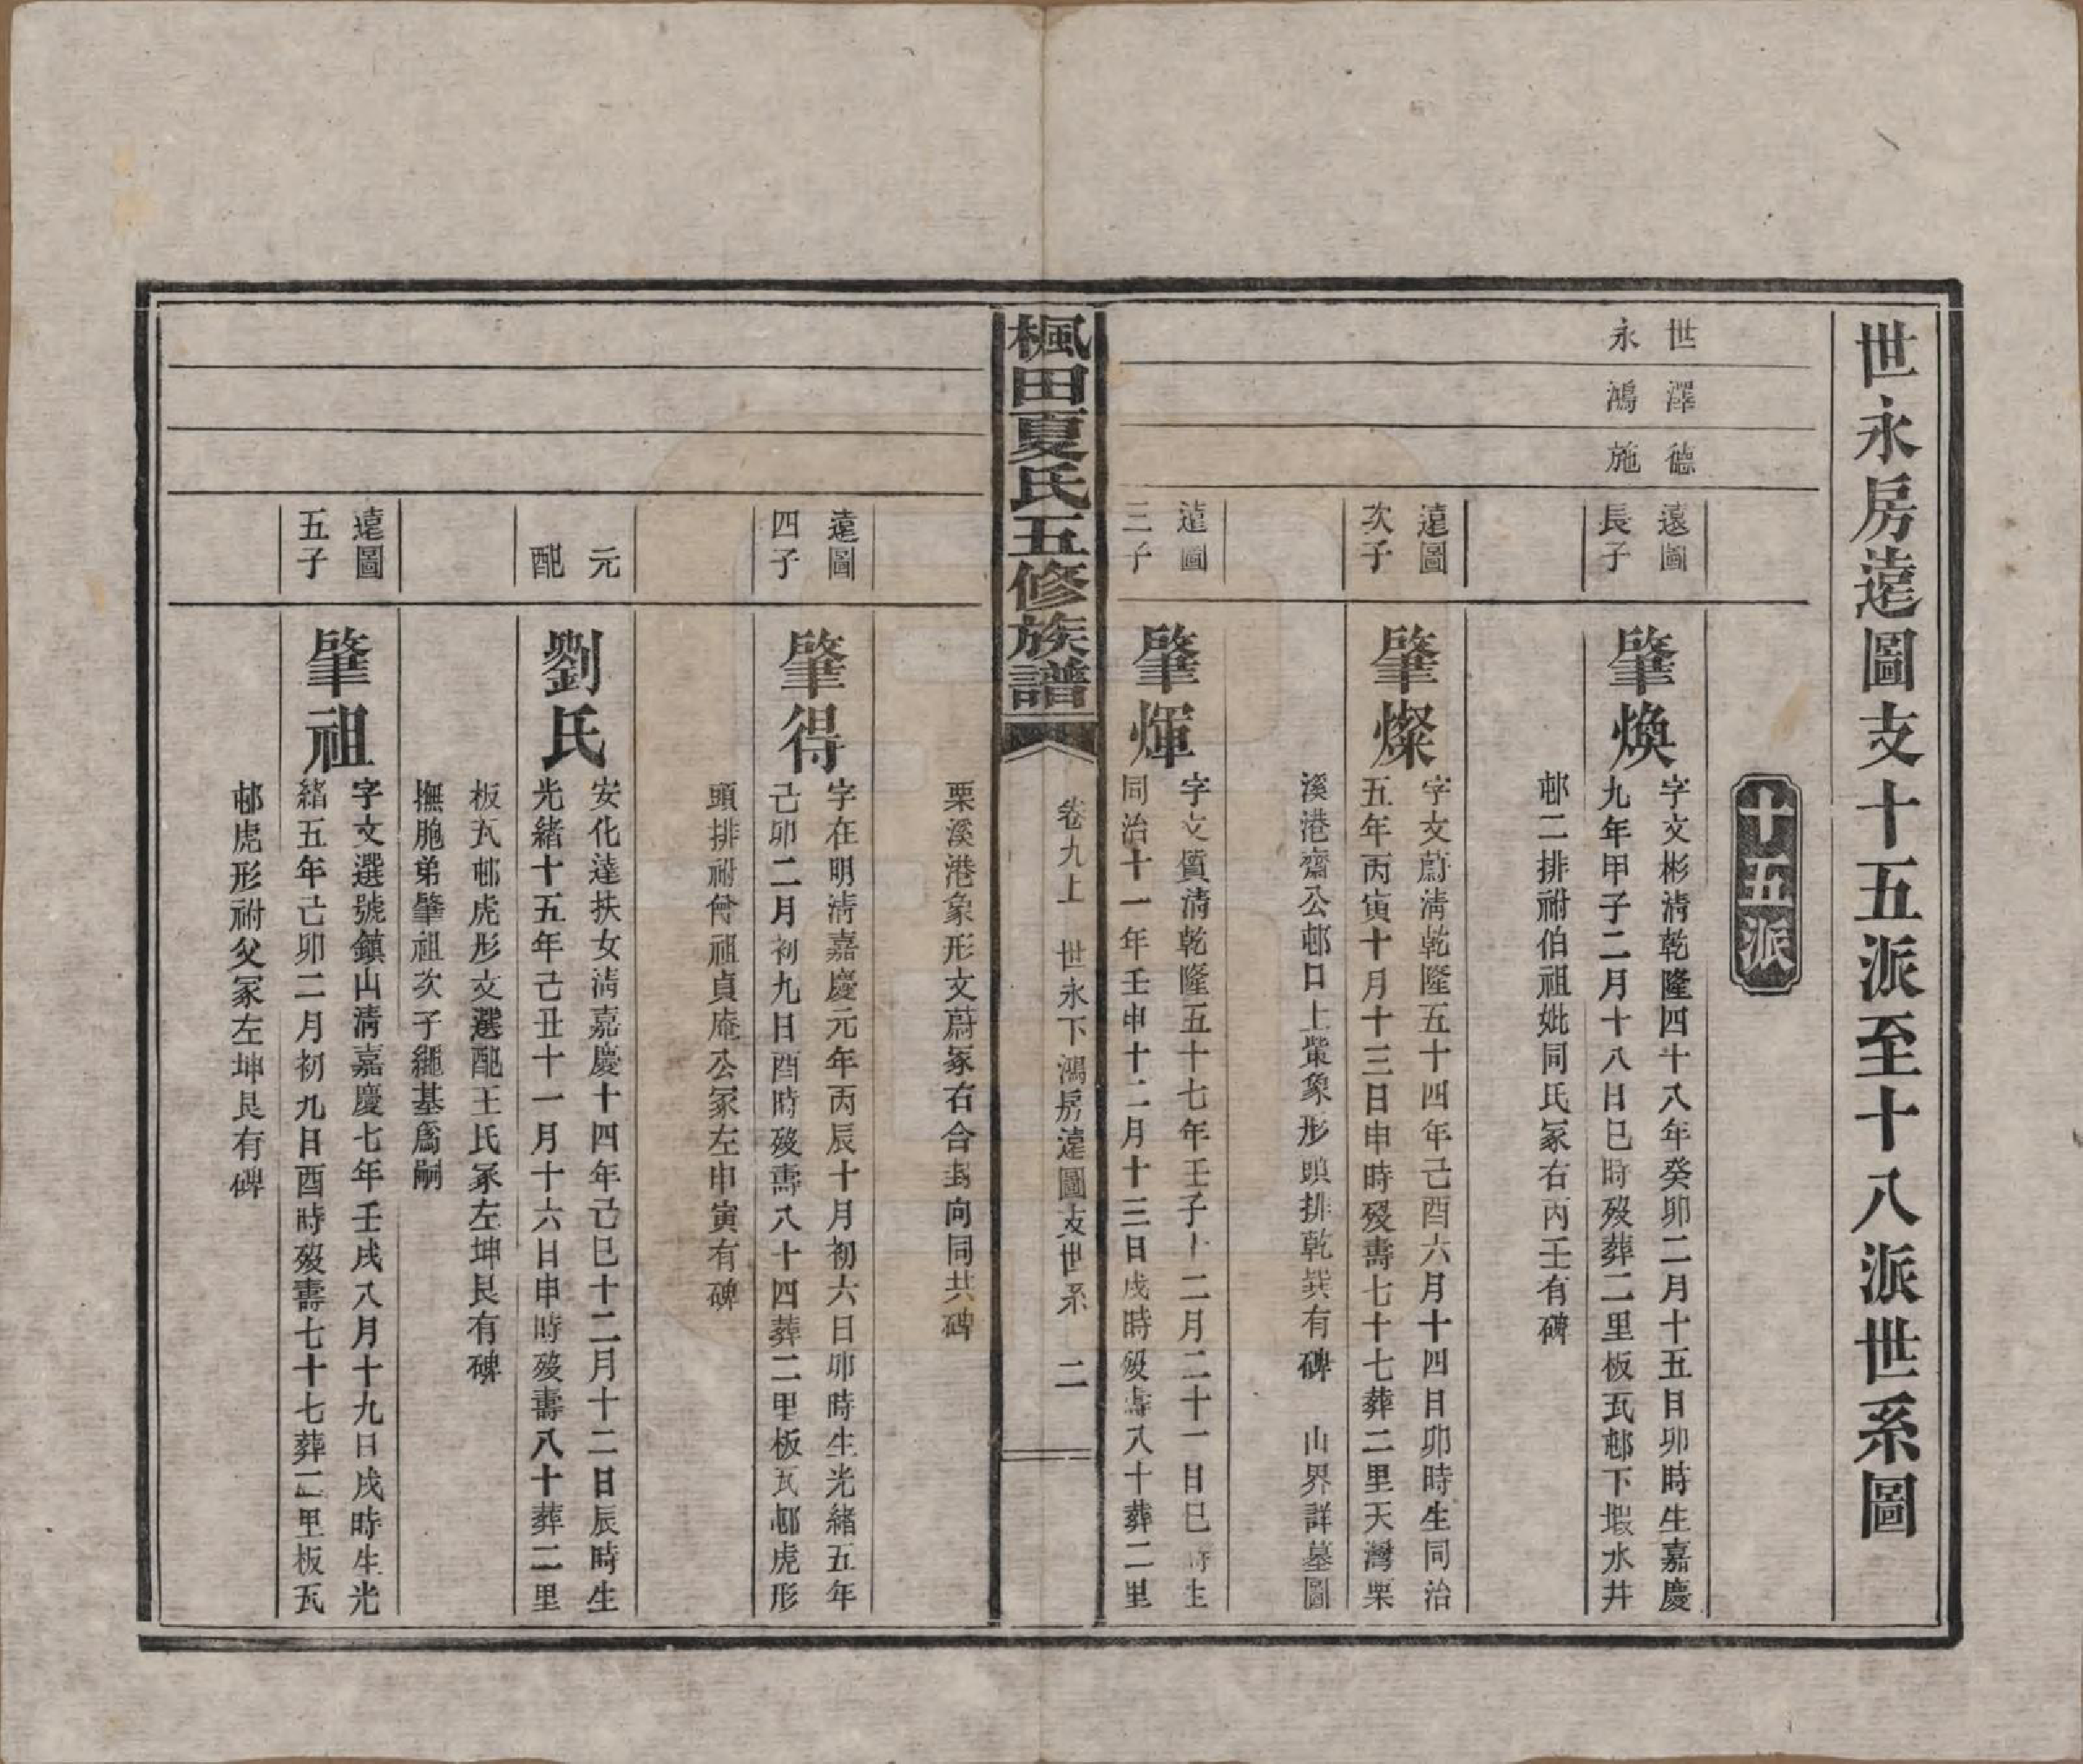 世永房遠圖支十五派至十八派世系圖
十五派
世澤德
永鴻施
遠圖
長子
肇煥
字文彬清乾隆四十八年癸卯二月十五日卯時生嘉慶
九年甲子二月十八日巳時歿葬二里板瓦邨下塅水井
邨二排祔伯祖妣同氏冢右丙壬有碑
遠圖
次子
肇燦
字文蔚清乾隆五十四年己酉六月十四日卯時生同治
五年丙寅十月十三日申時歿壽七十七葬二里天灣栗
溪港齋公邨口上紫象形頭排乾巽有碑 山界詳墓圖
遠圖
三子
肇煇
字文質清乾隆五十七年壬子十二月二十一日巳時生
同治十一年壬申十二月十三日戌時歿壽八十葬二里
楓田夏氏五修族譜
卷九上 世永下鴻房遠圖支世系 二
栗溪港象形文蔚冢右合封向同共碑
遠圖
四子
肇得
字在明清嘉慶元年丙辰十月初六日卯時生光緒五年
己卯二月初九日酉時歿壽八十四葬二里板瓦邨虎形
頭排祔曾祖貞庵公冢左申寅有碑
元
配
劉氏
安化達扶女清嘉慶十四年己巳十二月十二日辰時生
光緒十五年己丑十一月十六日申時歿壽八十葬二里
板瓦邨虎形文選配王氏冢左坤艮有碑
撫胞弟肇祖次子繩基爲嗣
遠圖
五子
肇祖
字文選號鎮山清嘉慶七年壬戌八月十九日戌時生光
緒五年己卯二月初九日酉時歿壽七十七葬二里板瓦
邨虎形祔父冢左坤艮有碑